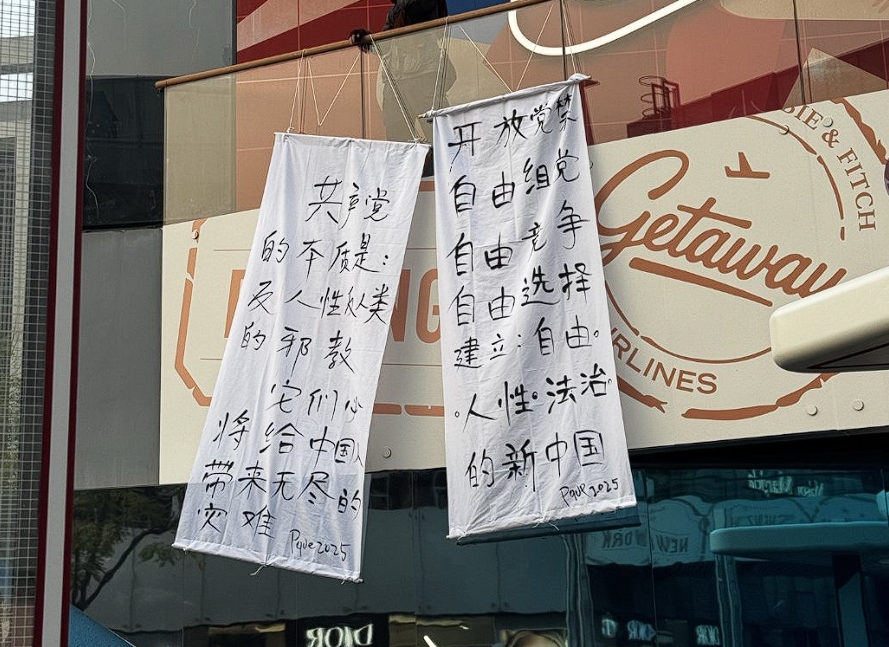 共产党
的本质是:
反人性反人类
的邪教
它们必
将给中国人
带来无尽的
灾难
2025
开放党禁
自由组党,
自由竞争
自由选择
建立:自由。
。人性。法治。
的新中国
2025
BIE & FITCH
Getaway
RLINES
NG
DIOR